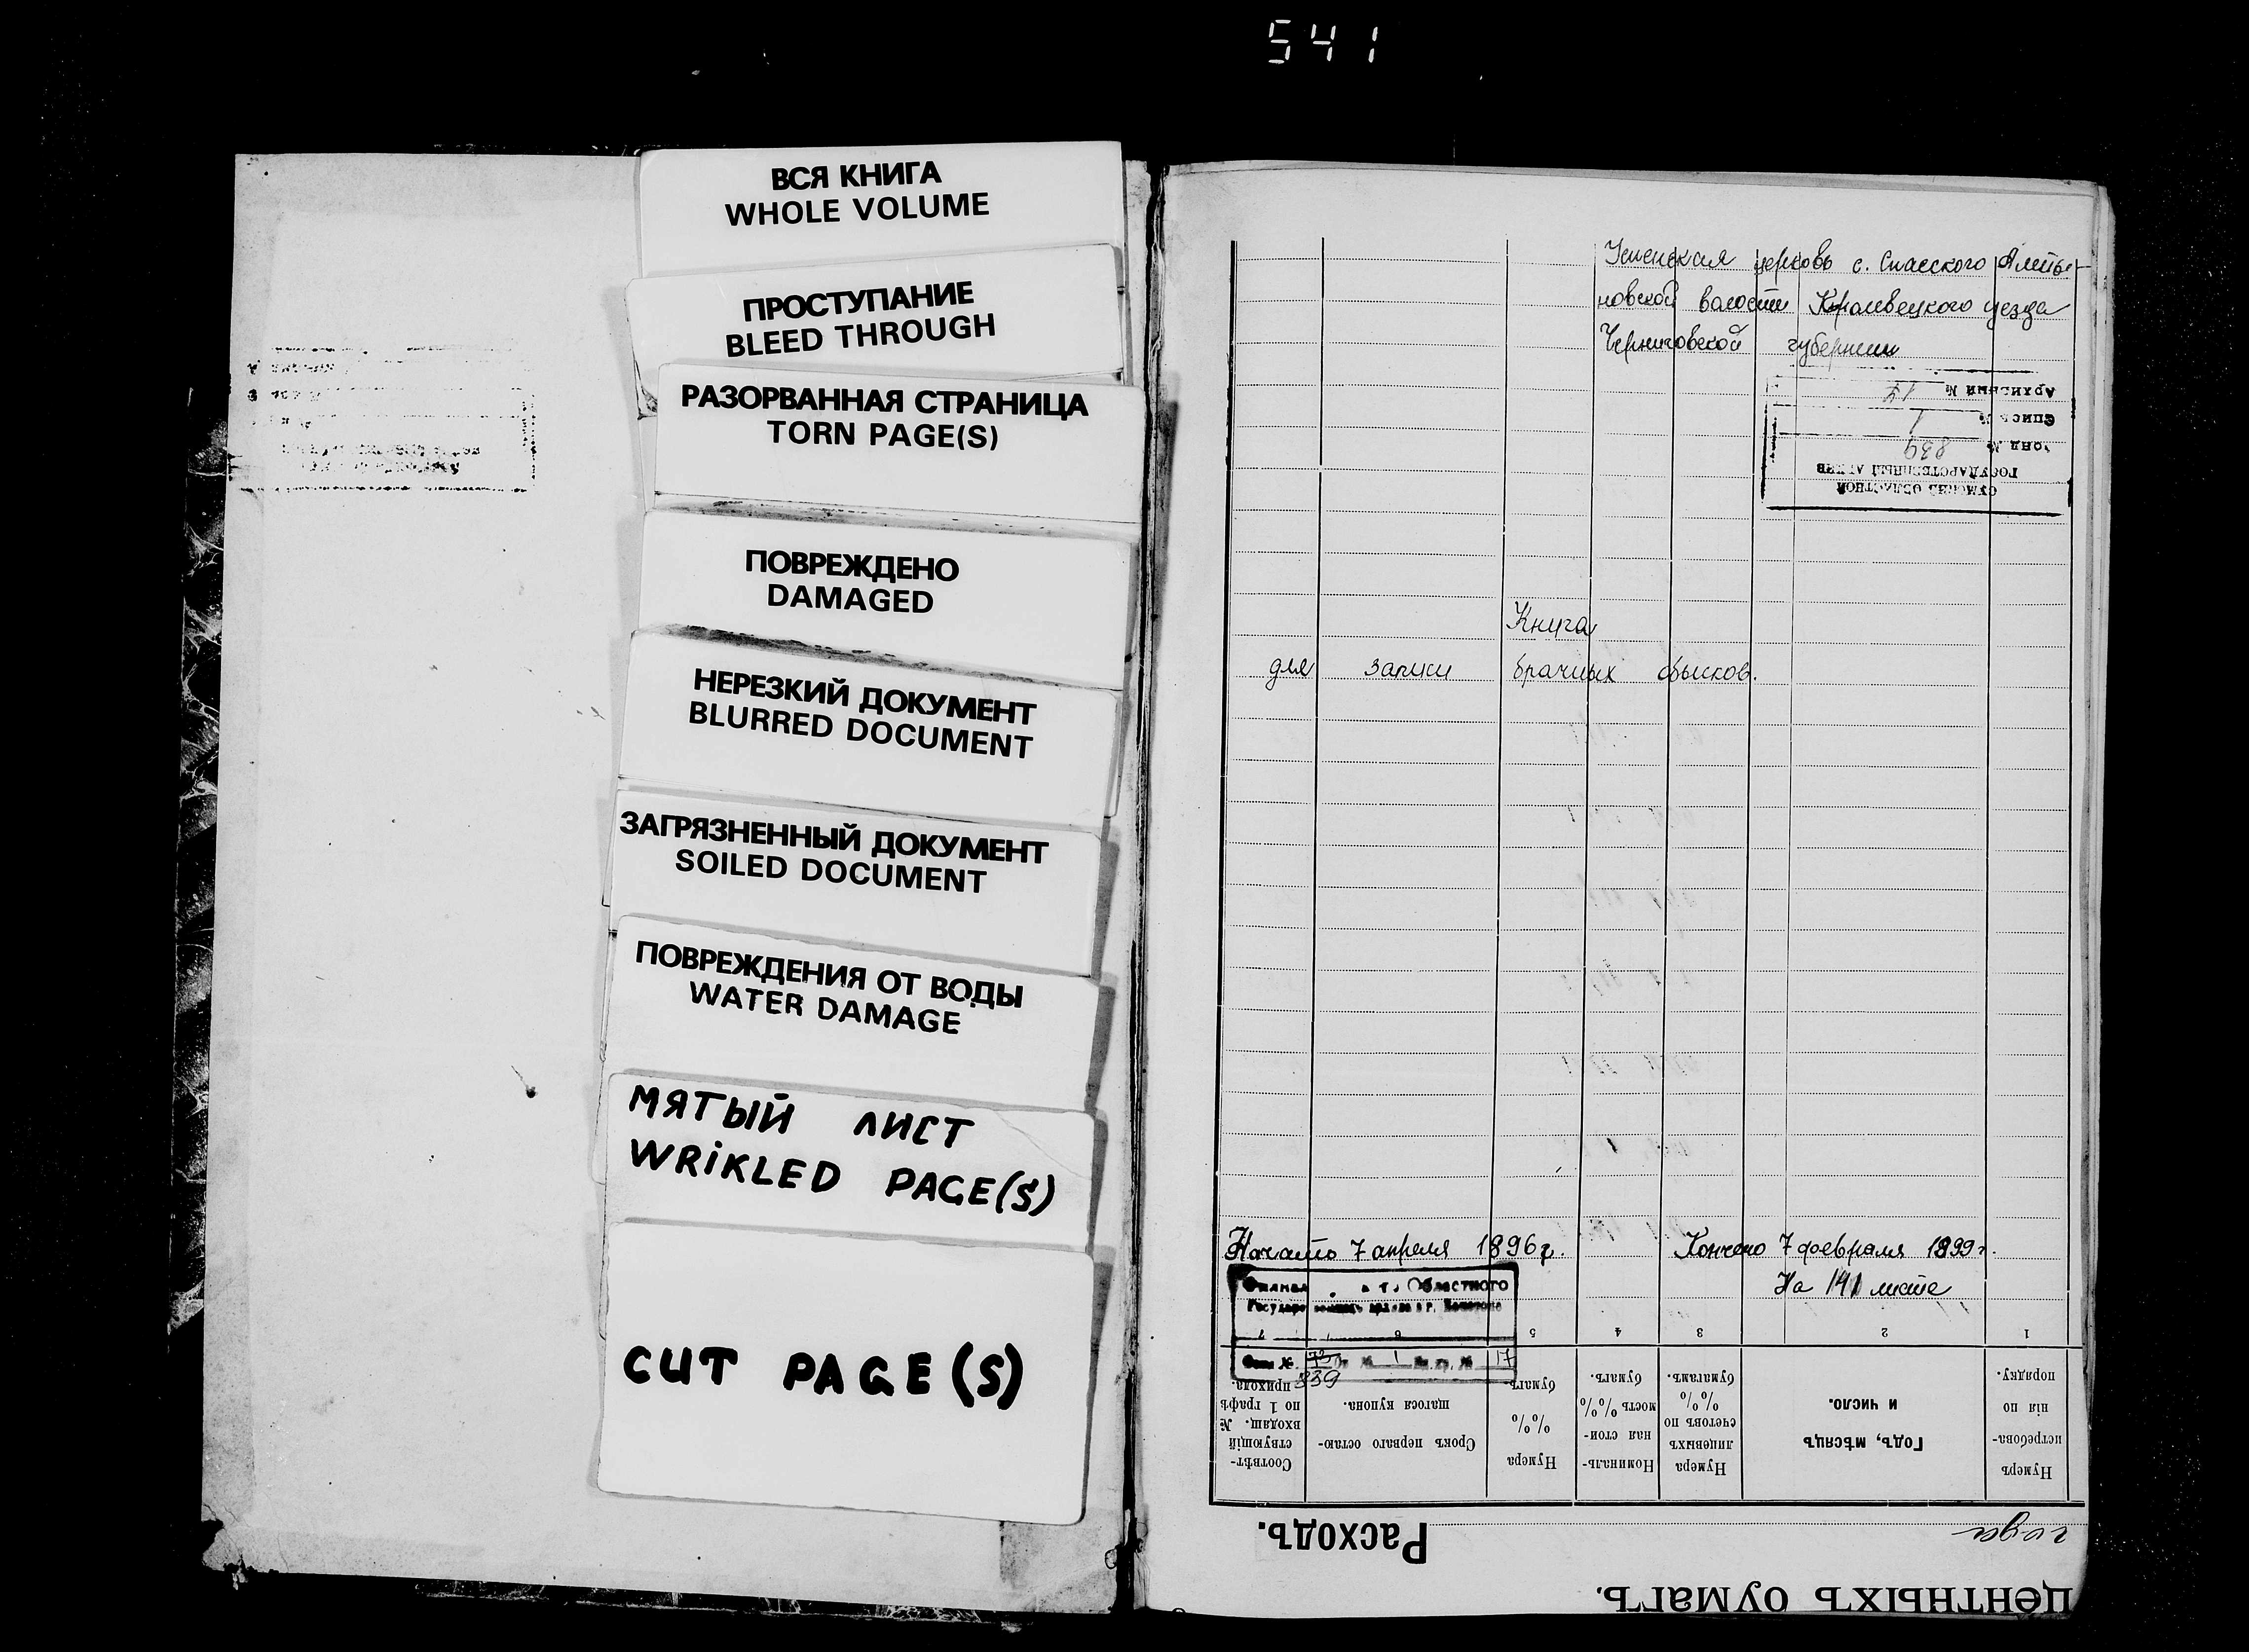 541
ВСЯ КНИГА
WHOLE VOLUME
ПРОСТУПАНИЕ
BLEED THROUGH
РАЗОРВАННАЯ СТРАНИЦА
TORN PAGE(S)
ПОВРЕЖДЕНО
DAMAGED
НЕРЕЗКИЙ ДОКУМЕНТ
BLURRED DOCUMENT
ЗАГРЯЗНЕННЫЙ ДОКУМЕНТ
SOILED DOCUMENT
ПОВРЕЖДЕНИЯ ОТ ВОДЫ
WATER DAMAGE
МЯТЫЙ ЛИСТ
WRIKLED PAGE(S)
CUT PAGE(S)
Успенская церковь с. Спасского
новской волости Кролевецкого уезда
Черниговской губернии
СУМСКОЙ ОБЛАСТНОЙ
ГОСУДАРСТВЕННЫЙ АРХИВ
839
1
Архивный № 17
Книга
для записи брачных обысков.
Начато 7 апреля 1896 г. Кончено 7 февраля 1899 г.
На 141 листе
Областного
№ 1 № 17
839
центныхъ бумагъ.
года
Расходъ.
Нумеръ истребованія по порядку.
Годъ, мѣсяцъ и число.
Нумера лицевыхъ счетовъ по %% бумагамъ.
Номинальная стоимость %% бумагъ.
Нумера %% бумагъ.
Срокъ перваго остающагося купона.
Соотвѣтствующій входящ. № по 1 графѣ прихода.
1 2 3 4 5 6 7